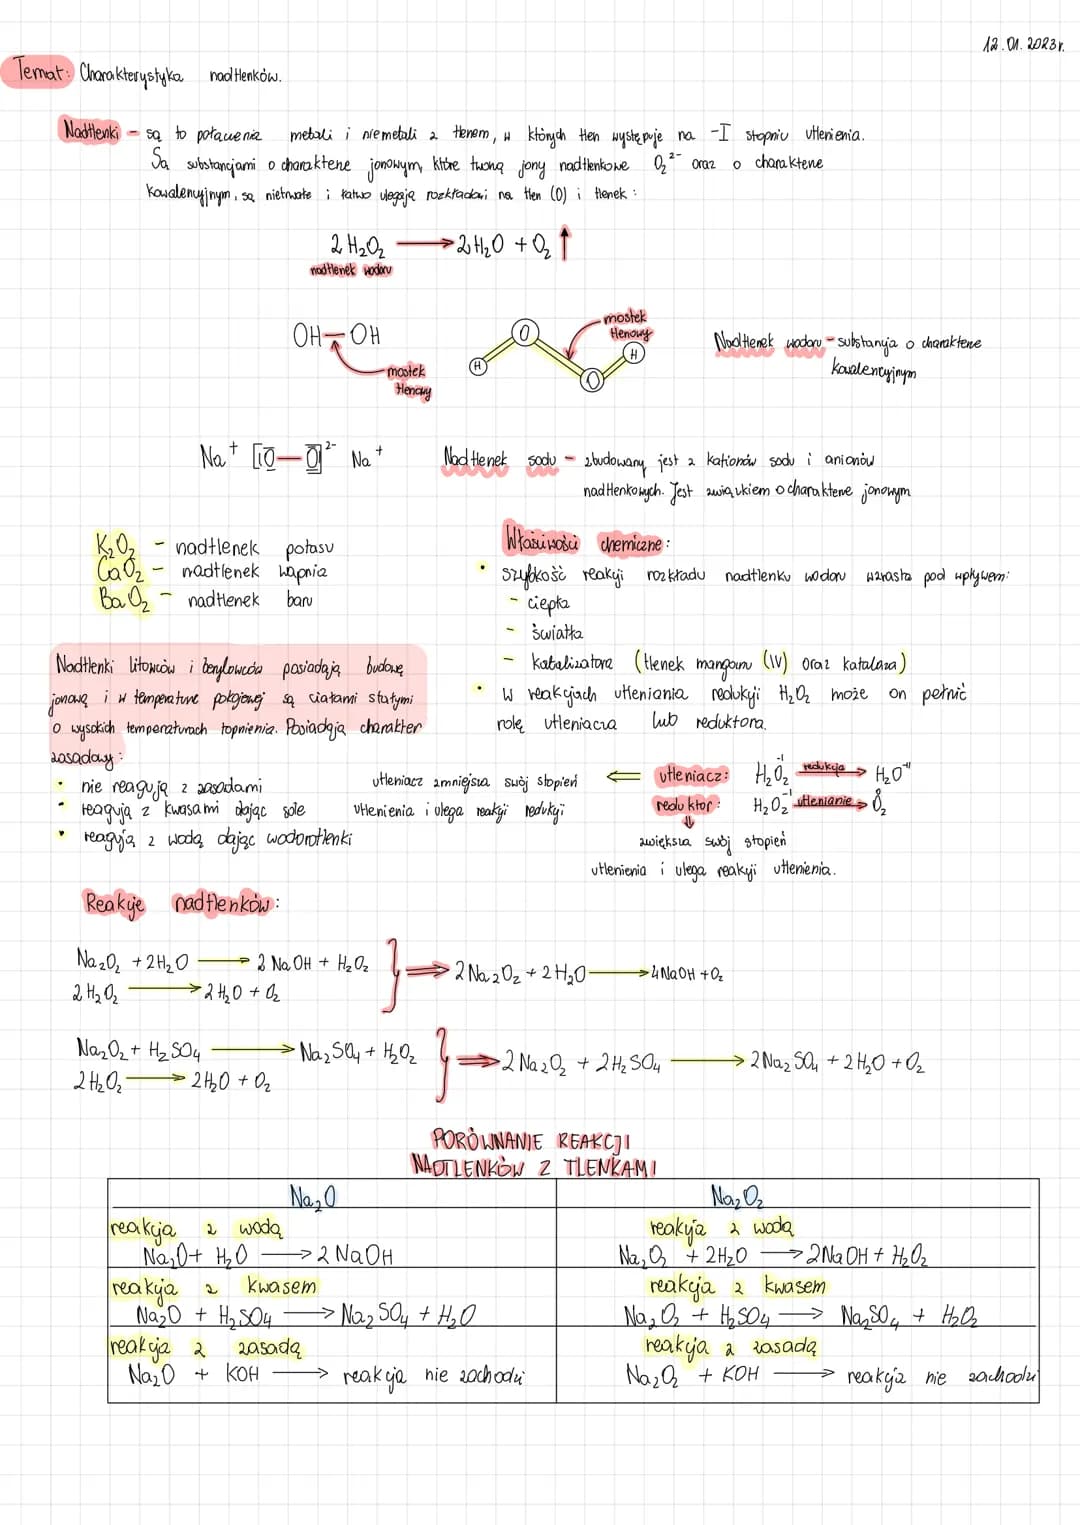 12.01.2023r.
Temat: Charakterystyka nadtlenków.
Nadtlenki - są to połączenia metali i niemetali z tlenem, w których tlen występuje na -I stopniu utlenienia.
Są substancjami o charakterze jonowym, które tworzą jony nadtlenkowe O₂²⁻ oraz o charakterze
kowalencyjnym, są nietrwałe i łatwo ulegają rozkładowi na tlen (O) i tlenek:
2 H₂O₂ → 2 H₂O + O₂ ↑
nadtlenek wodoru
OH — OH
mostek
tlenowy
H O O H
mostek
tlenowy
Nadtlenek wodoru - substancja o charakterze
kowalencyjnym
Na⁺ [|O̅—O̅|]²⁻ Na⁺
Nadtlenek sodu - zbudowany jest z kationów sodu i anionów
nadtlenkowych. Jest związkiem o charakterze jonowym
K₂O₂ - nadtlenek potasu
CaO₂ - nadtlenek wapnia
BaO₂ - nadtlenek baru
Nadtlenki litowców i berylowców posiadają budowę
jonową i w temperaturze pokojowej są ciałami stałymi
o wysokich temperaturach topnienia. Posiadają charakter
zasadowy:
• nie reagują z zasadami
• reagują z kwasami dając sole
• reagują z wodą dając wodorotlenki
Właściwości chemiczne:
• szybkość reakcji rozkładu nadtlenku wodoru wzrasta pod wpływem:
- ciepła
- światła
- katalizatora (tlenek manganu (IV) oraz katalaza)
• W reakcjach utleniania redukcji H₂O₂ może on pełnić
rolę utleniacza lub reduktora.
utleniacz zmniejsza swój stopień ⇐ utleniacz: H₂O₂⁻¹ redukcja → H₂O⁻ᴵᴵ
utlenienia i ulega reakcji redukcji reduktor: H₂O₂⁻¹ utlenianie → O₂⁰
⇓
zwiększa swój stopień
utlenienia i ulega reakcji utlenienia.
Reakcje nadtlenków:
Na₂O₂ + 2H₂O → 2 NaOH + H₂O₂ } ⇒ 2 Na₂O₂ + 2 H₂O → 4 NaOH + O₂
2 H₂O₂ → 2 H₂O + O₂
Na₂O₂ + H₂SO₄ → Na₂SO₄ + H₂O₂ } ⇒ 2 Na₂O₂ + 2 H₂SO₄ → 2 Na₂SO₄ + 2 H₂O + O₂
2 H₂O₂ → 2 H₂O + O₂
PORÓWNANIE REAKCJI
NADTLENKÓW Z TLENKAMI
Na₂O Na₂O₂
reakcja z wodą reakcja z wodą
Na₂O + H₂O → 2 NaOH Na₂O₂ + 2H₂O → 2NaOH + H₂O₂
reakcja z kwasem reakcja z kwasem
Na₂O + H₂SO₄ → Na₂SO₄ + H₂O Na₂O₂ + H₂SO₄ → Na₂SO₄ + H₂O₂
reakcja z zasadą reakcja z zasadą
Na₂O + KOH → reakcja nie zachodzi Na₂O₂ + KOH → reakcja nie zachodzi